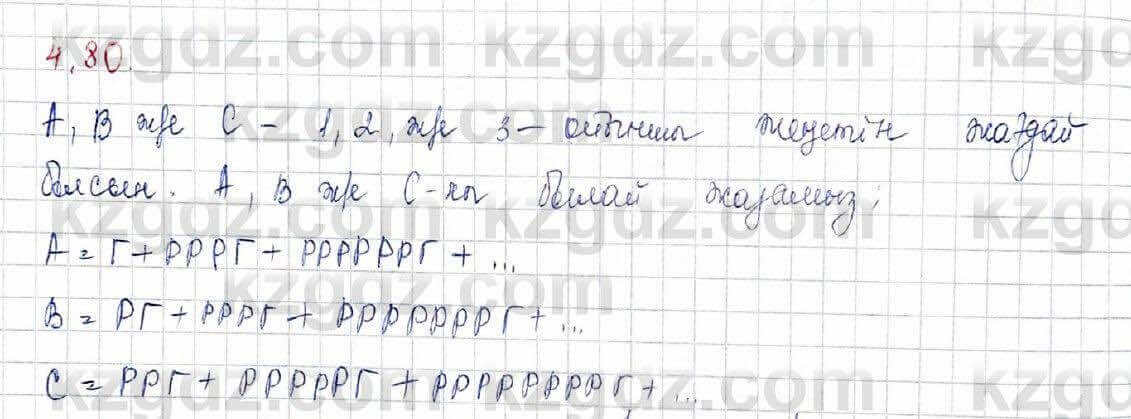 4,80.
A, B және C – 1, 2, және 3 – ойыншы жеңетін жағдай
болсын. A, B және C-ны былай жазамыз:
A = Г + РРРГ + РРРРРРГ + ...
B = РГ + РРРГ + РРРРРРРГ + ...
C = РРГ + РРРРРГ + РРРРРРРРГ + ...
kzgdz.com